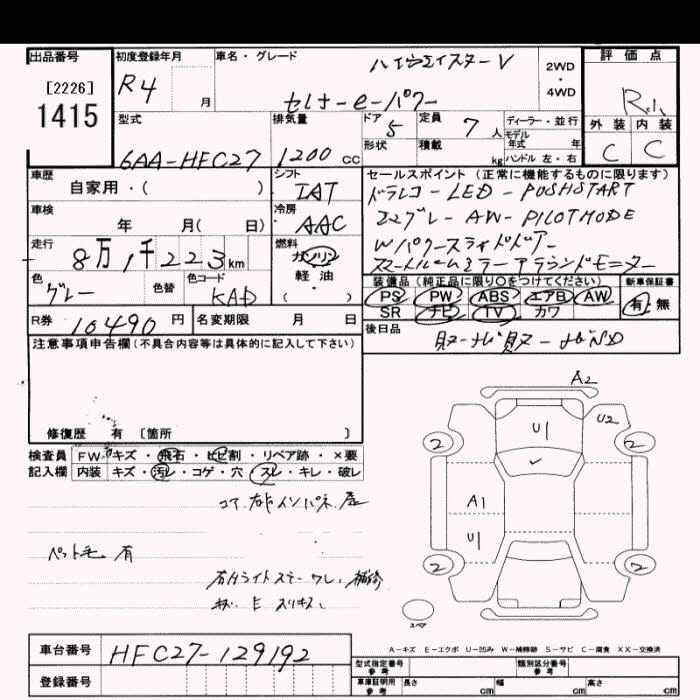 出品番号 初度登録年月 車名・グレード 評価点
[2226] R4 月 ハイウェイスターV 2WD・4WD R.1.
1415 セレナーeーパワー
型式 排気量 ドア 定員 ディーラー・並行 外装 内装
6AA-HFC27 1200 CC 5 7人 モデル年式 年 C C
形状 積載 kg ハンドル 左・右
車歴 シフト セールスポイント (正常に機能するものに限ります)
自家用・( ) IAT ドラレコ-LED-PUSHSTART
車検 冷房 エマブレ-AW-PILOTMODE
年 月( 日) AAC Wパワースライドドアー
走行 8万1千223km 燃料 スマートルームミラーアラウンドモニター
ガソリン
軽・油
( )
色 色替 色コード 装備品 (純正品に限り○をつけてください) 新車保証書
グレー KAD PS PW ABS エアB AW 有 無
SR ナビ TV カワ
R券 10490円 名変期限 月 日 後日品
注意事項申告欄(不具合内容等は具体的に記入して下さい)
修復歴 有 〔箇所 〕
検査員 FW キズ・飛石・ヒビ割・リペア跡・×要
記入欄 内装 キズ・汚レ・コゲ・穴・スレ・キレ・破レ
ペット毛 有
A2
U1 U2
2 2
A1
U1
2 2
スペア
A-キズ E-エクボ U-凹み W-補修跡 S-サビ C-腐食 XX-交換済
車台番号 HFC27-129192
登録番号
型式指定番号 参考 類別区分番号 参考
車庫証明用 参考 長さ cm 幅 cm 高さ cm